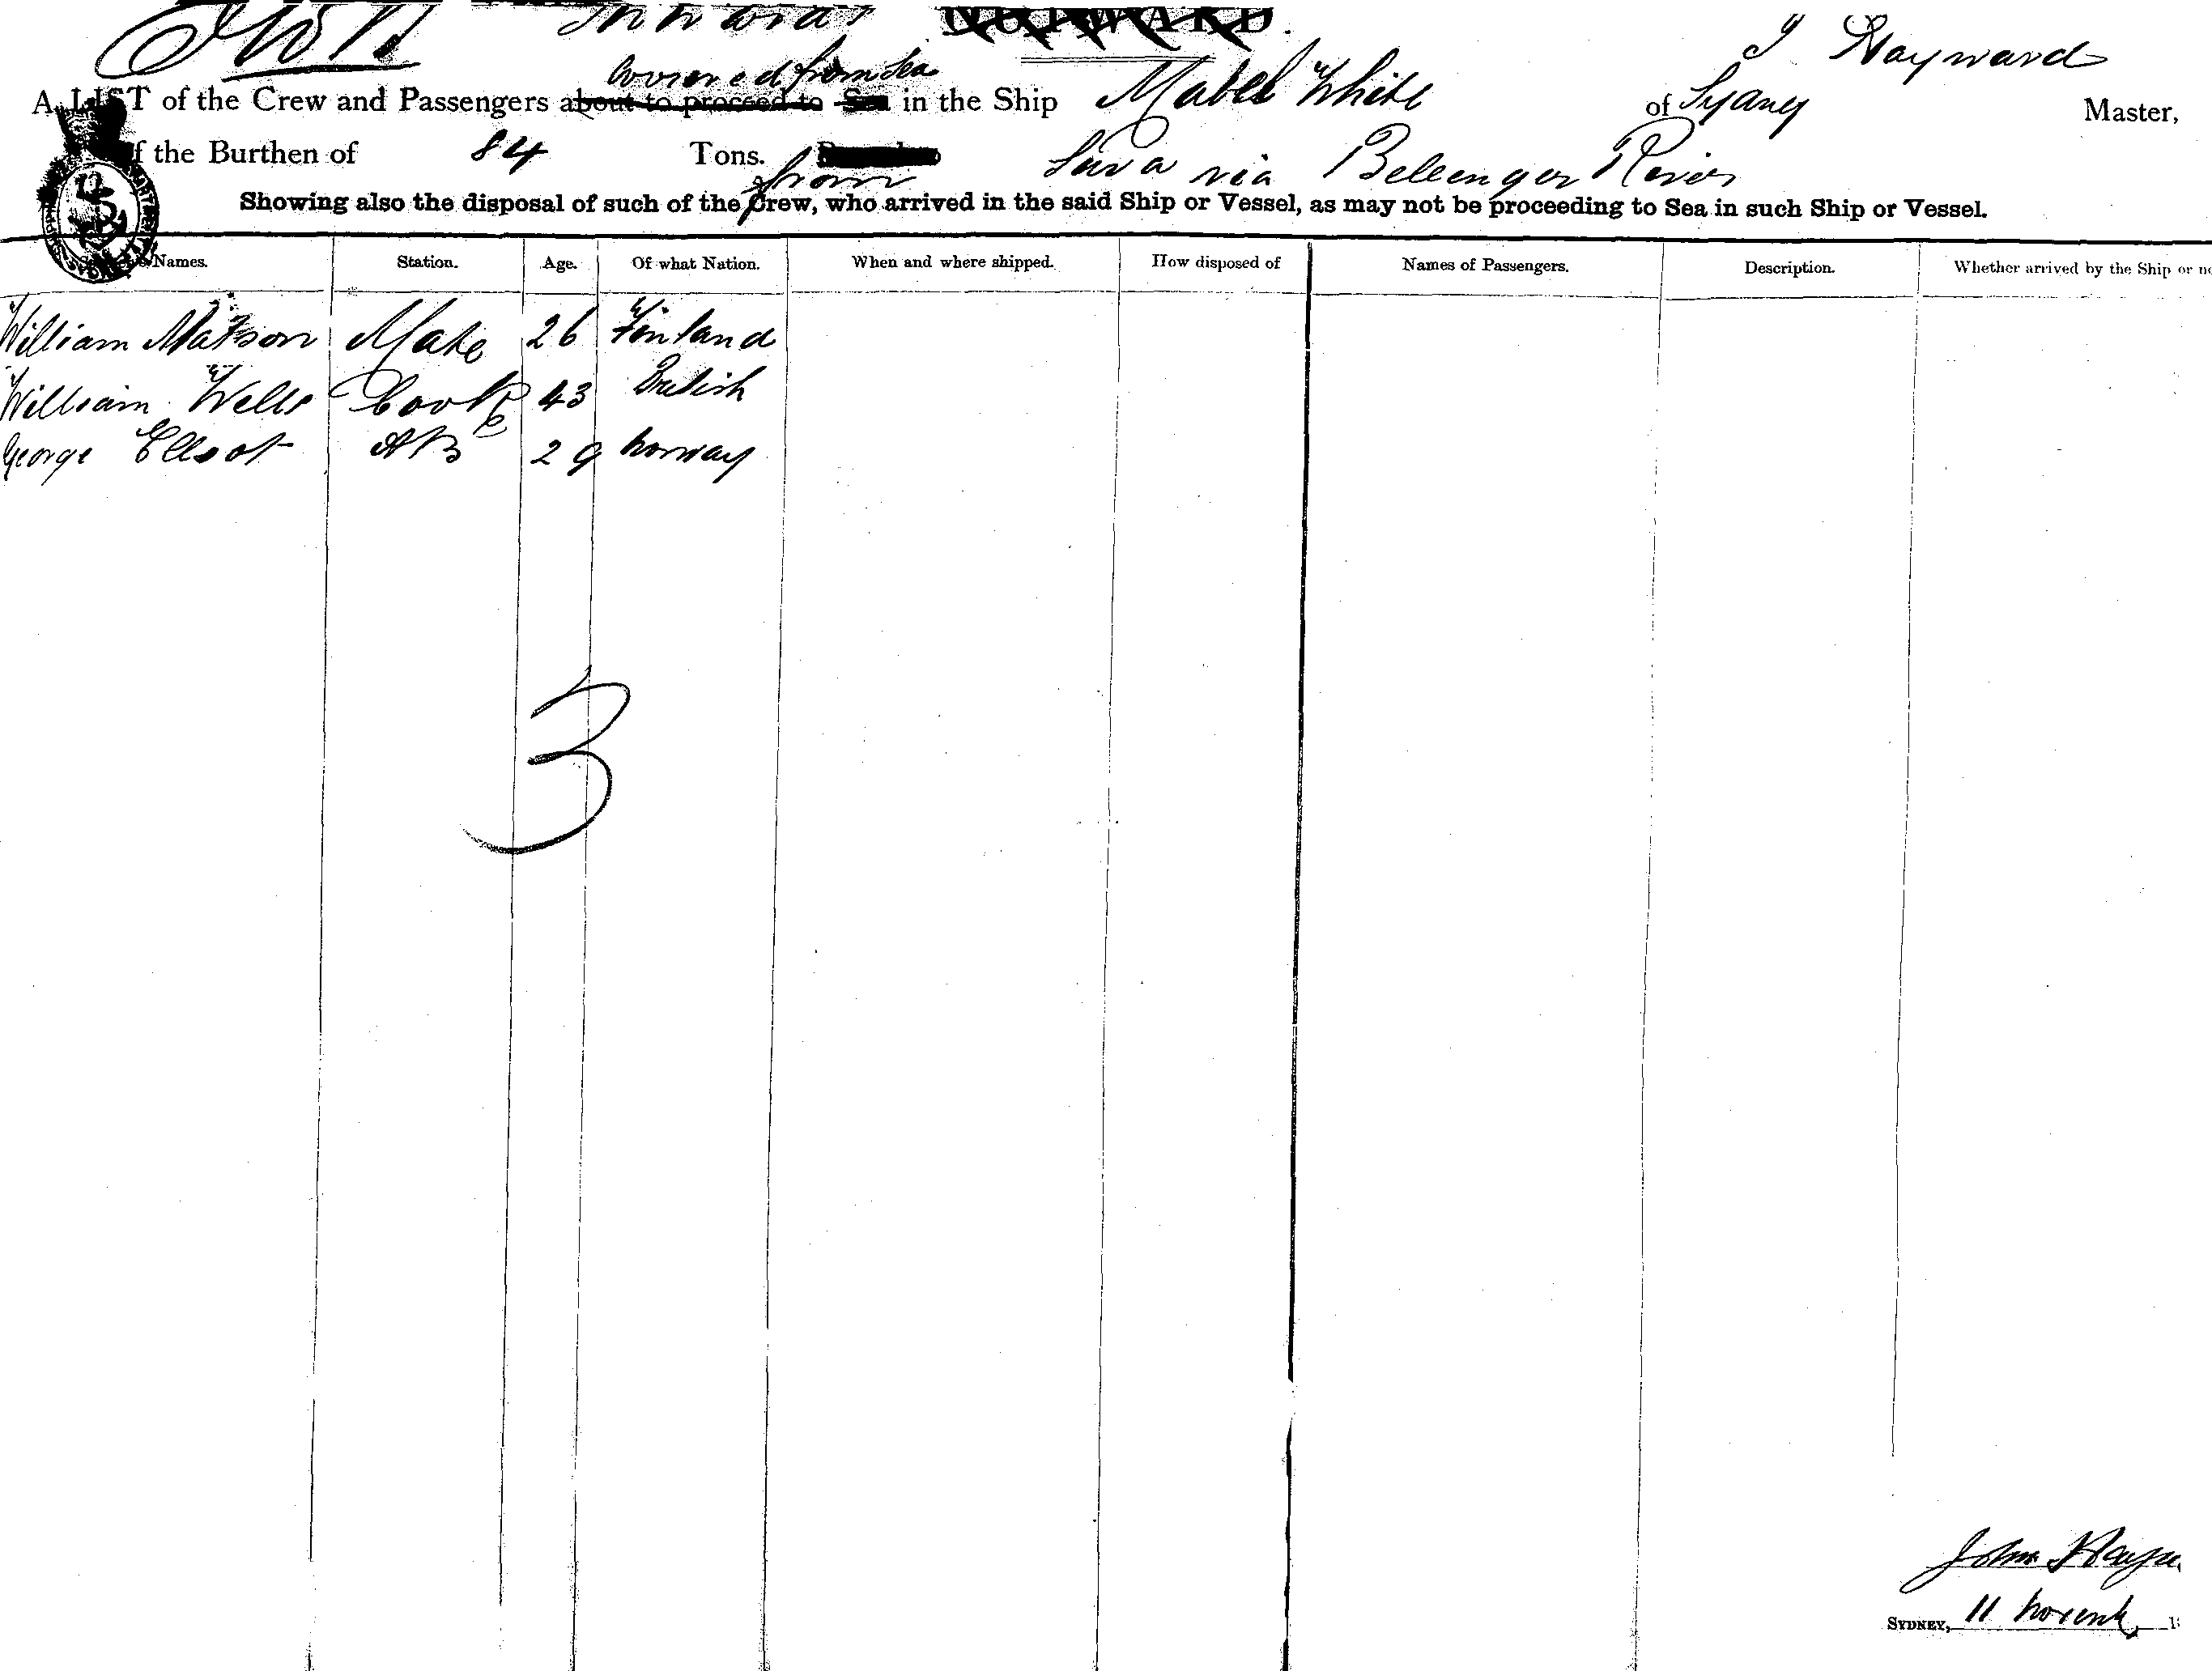 Inwards OUTWARD.
J Hayward
arrived from Sea
A LIST of the Crew and Passengers about to proceed to Sea in the Ship Mabel White of Sydney Master,
of the Burthen of 84 Tons. from Suva via Bellenger River
Showing also the disposal of such of the Crew, who arrived in the said Ship or Vessel, as may not be proceeding to Sea in such Ship or Vessel.
Names. Station. Age. Of what Nation. When and where shipped. How disposed of Names of Passengers. Description. Whether arrived by the Ship or no
William Matson Mate 26 Finland
William Wells Cook 43 British
George Elliot AB 29 Norway
3
John Hayw
SYDNEY, 11 Novemb 1